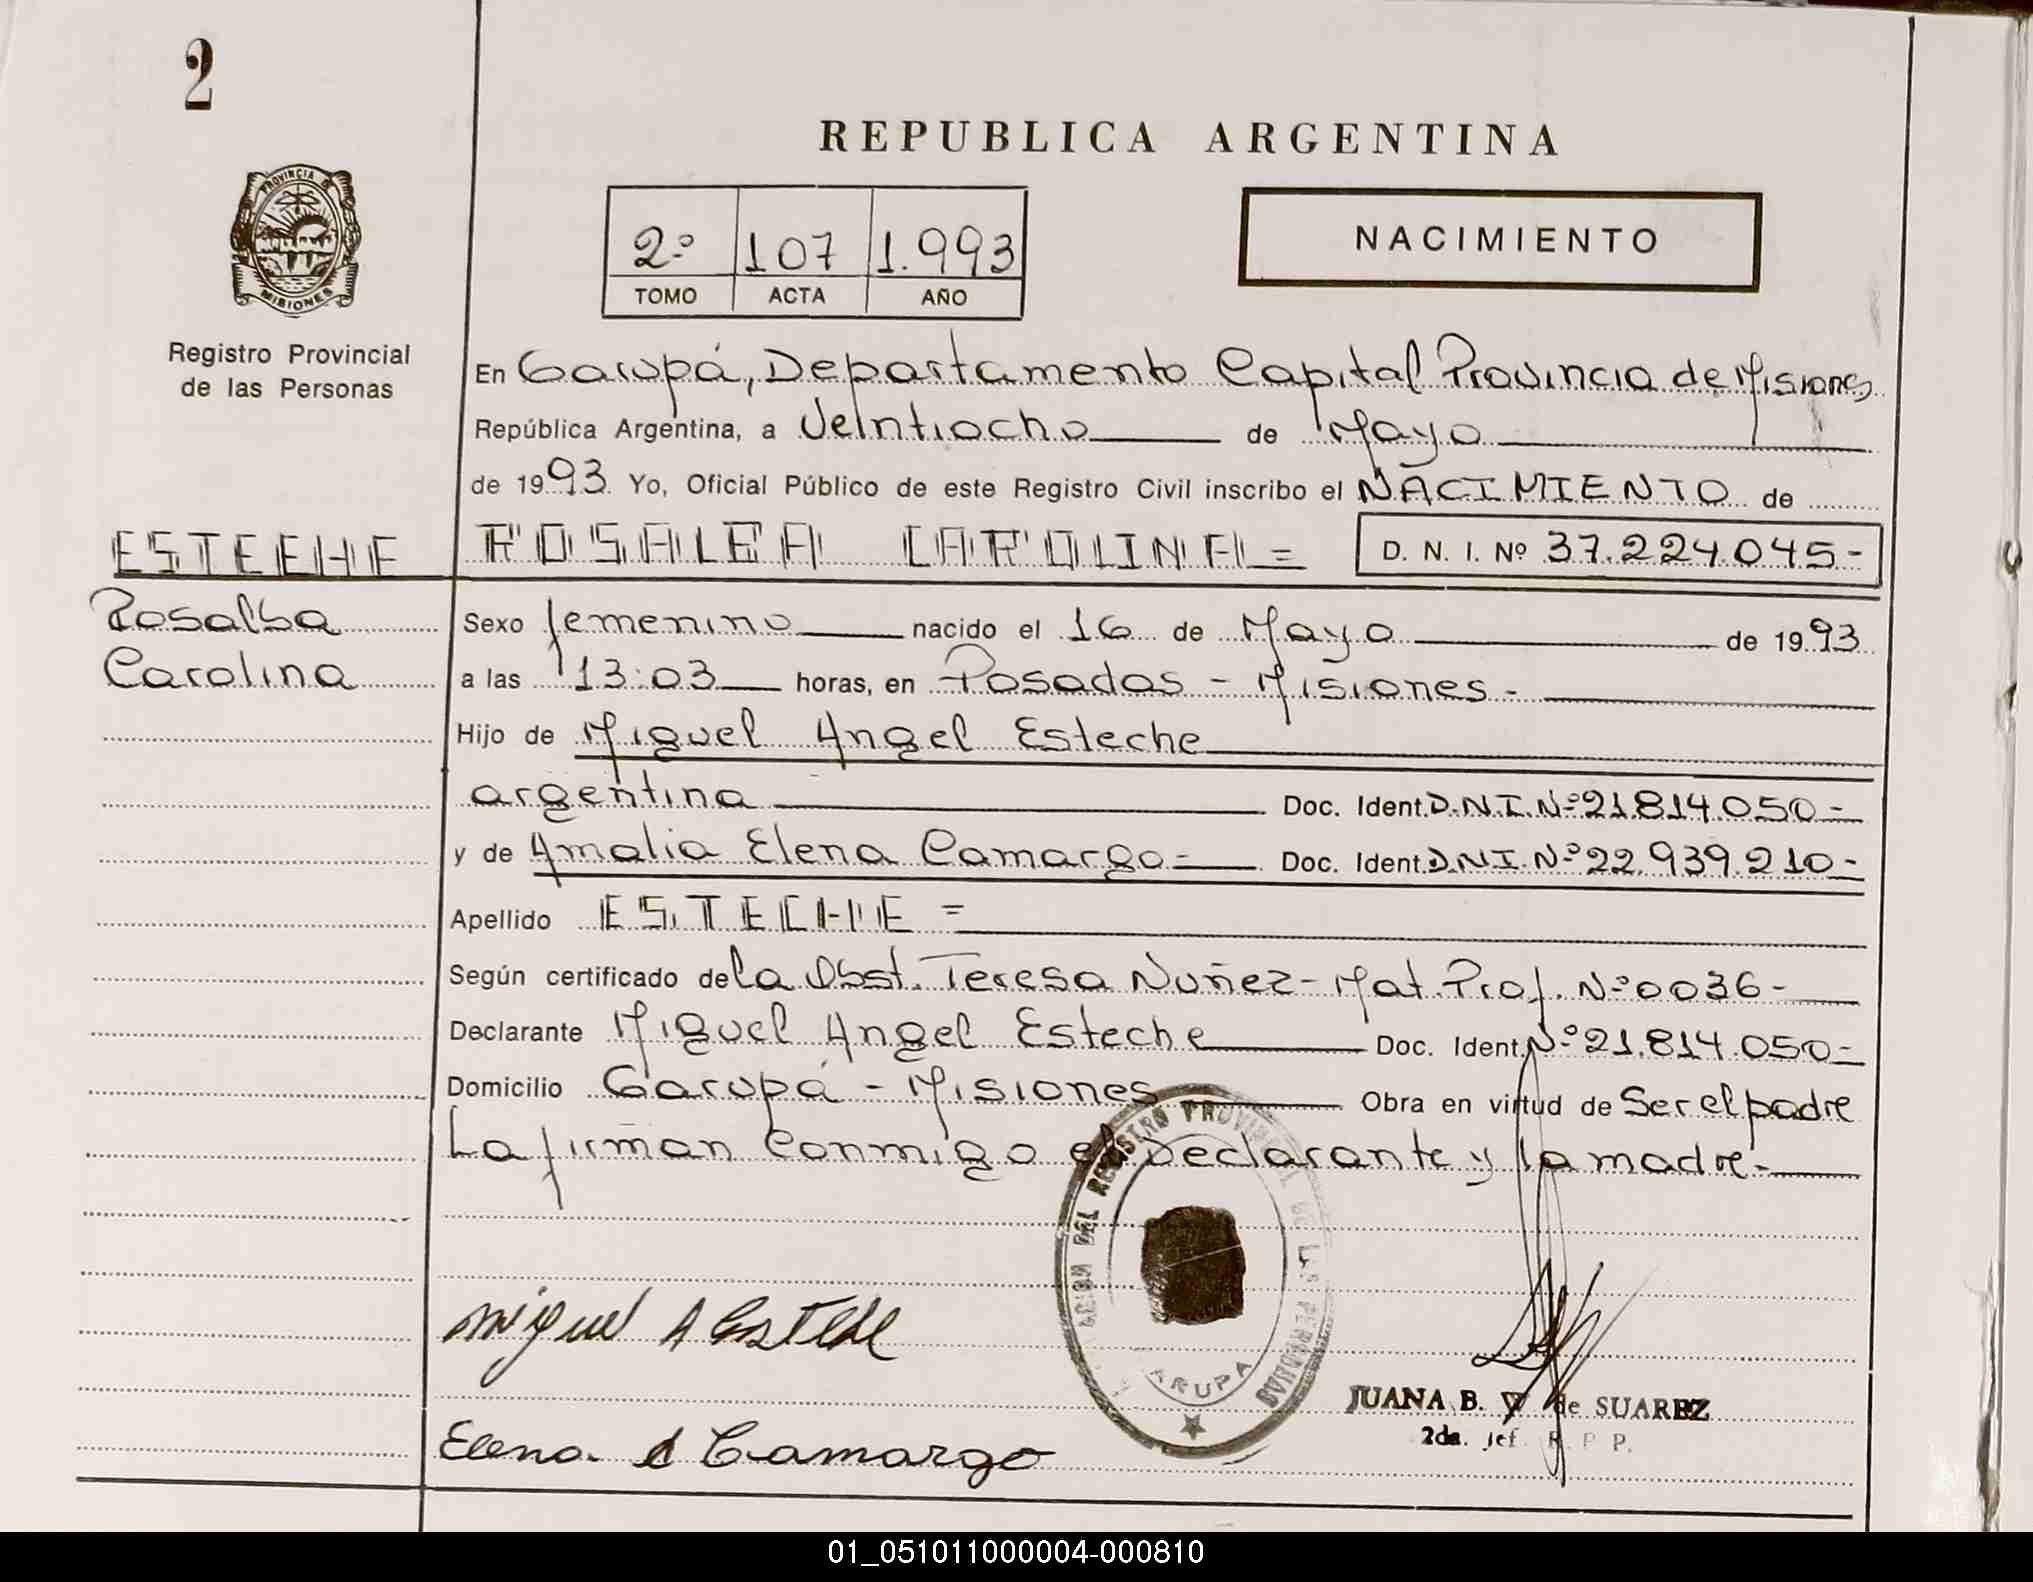 2
REPUBLICA ARGENTINA
PROVINCIA DE
MISIONES
Registro Provincial
de las Personas
2º 107 1.993
TOMO ACTA AÑO
NACIMIENTO
En Garupá, Departamento Capital Provincia de Misiones
República Argentina, a Veintiocho de Mayo
de 1993 Yo, Oficial Público de este Registro Civil inscribo el NACIMIENTO de
ESTECHE ROSALBA CAROLINA= D. N. I. Nº 37.224.045-
Rosalba Sexo femenino nacido el 16 de Mayo de 1993
Carolina a las 13:03 horas, en Posadas - Misiones -
Hijo de Miguel Angel Esteche
argentina Doc. Ident. D.N.I. Nº 21.814.050=
y de Amalia Elena Camargo= Doc. Ident. D.N.I. Nº 22.939.210-
Apellido ESTECHE =
Según certificado de la Obst. Teresa Nuñez - Mat. Prof. Nº 0036-
Declarante Miguel Angel Esteche Doc. Ident. Nº 21.814.050=
Domicilio Garupá - Misiones Obra en virtud de Ser el padre
La firman conmigo el Declarante y la madre-
REGISTRO PROVINCIAL DE LAS PERSONAS
GARUPA
Miguel A Esteche
JUANA B. V de SUAREZ
2da. Jef. R. P. P.
Elena A Camargo
01_051011000004-000810